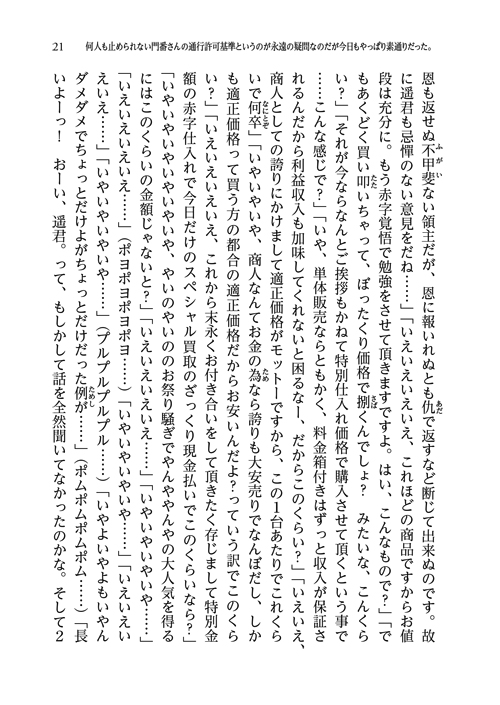 21　何人も止められない門番さんの通行許可基準というのが永遠の疑問なのだが今日もやっぱり素通りだった。
恩も返せぬ不甲斐ない領主だが、恩に報いれぬとも仇で返すなど断じて出来ぬのです。故
に遥君も忌憚のない意見をだね……」「いえいえいえいえ、これほどの商品ですからお値
段は充分に。もう赤字覚悟で勉強をさせて頂きますですよ。はい、こんなもので？」「で
もあくどく買い叩いちゃって、ぼったくり価格で捌くんでしょ？　みたいな、こんくら
いが？」「それが今ならなんとご挨拶もかねて特別仕入れ価格で購入させて頂くという事で
……こんな感じで？」「いや、単体販売ならともかく、料金箱付きはずっと収入が保証さ
れるんだから利益収入も加味してくれないと困るなー、だからこのくらい？」「いえいえ、
商人としての誇りにかけまして適正価格がモットーですから、この１台あたりでこれくら
いで何卒」「いやいやいや、商人なんてお金の為なら誇りも大安売りでなんぼだし、しか
も適正価格って買う方の都合の適正価格だからお安いんだよ？っていう訳でこのくら
い？」「いえいえいえいえ、これから末永くお付き合いをして頂きたく存じまして特別金
額の赤字仕入れで今日だけのスペシャル買取のざっくり現金払いでこのくらいなら？」
「いやいやいやいやいやいや、やいのやいののお祭り騒ぎでやんややんやの大人気を得る
にはこのくらいの金額じゃないと？」「いえいえいえいえ……」「いやいやいやいや……」
「いえいえいえいえ……」（ポヨポヨポヨポヨ……）「いやいやいやいや……」「いえいえい
えいえ……」「いやいやいやいや……」（プルプルプルプル……）「いやよいやよもいやん
ダメダメでちょっとだけよがちょっとだけだった例が……」（ポムポムポムポム……）「長
いよーっ！　おーい、遥君。って、もしかして話を全然聞いてなかったのかな。そして２